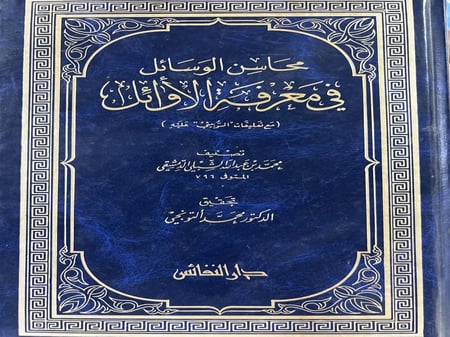 محاسن الوسائل
في معرفة الأوائل
(مع تعليقات "الزبيدي" عليه)
تصنيف
محمد بن عبدالله الشبلي الدمشقي
المتوفى ٧٩٦
تحقيق
الدكتور محمد التونجي
دار النفائس